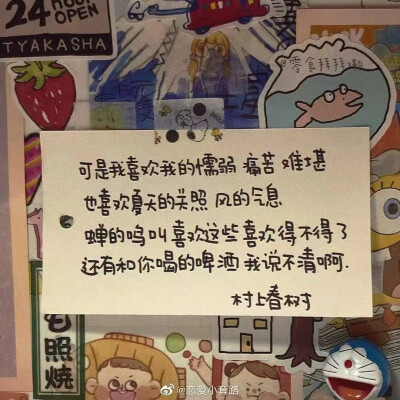 24 HOUR
OPEN
TYAKASHA
@零食拜拜啦
可是我喜欢我的懦弱 痛苦 难堪
也喜欢夏天的关照 风的气息
蝉的呜叫喜欢这些喜欢得不得了
还有和你喝的啤酒 我说不清啊.
村上春树
照
烧
@恋爱小套路